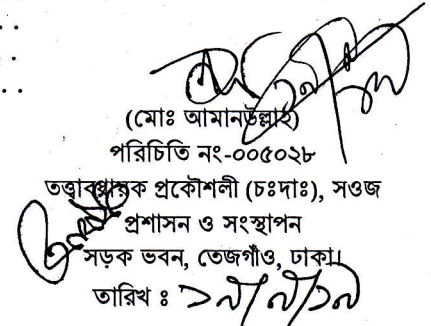 (মোঃ আমানউল্লাহ)
পরিচিতি নং-০০৫০২৮
তত্ত্বাবধায়ক প্রকৌশলী (চঃদাঃ), সওজ
প্রশাসন ও সংস্থাপন
সড়ক ভবন, তেজগাঁও, ঢাকা।
তারিখ ঃ